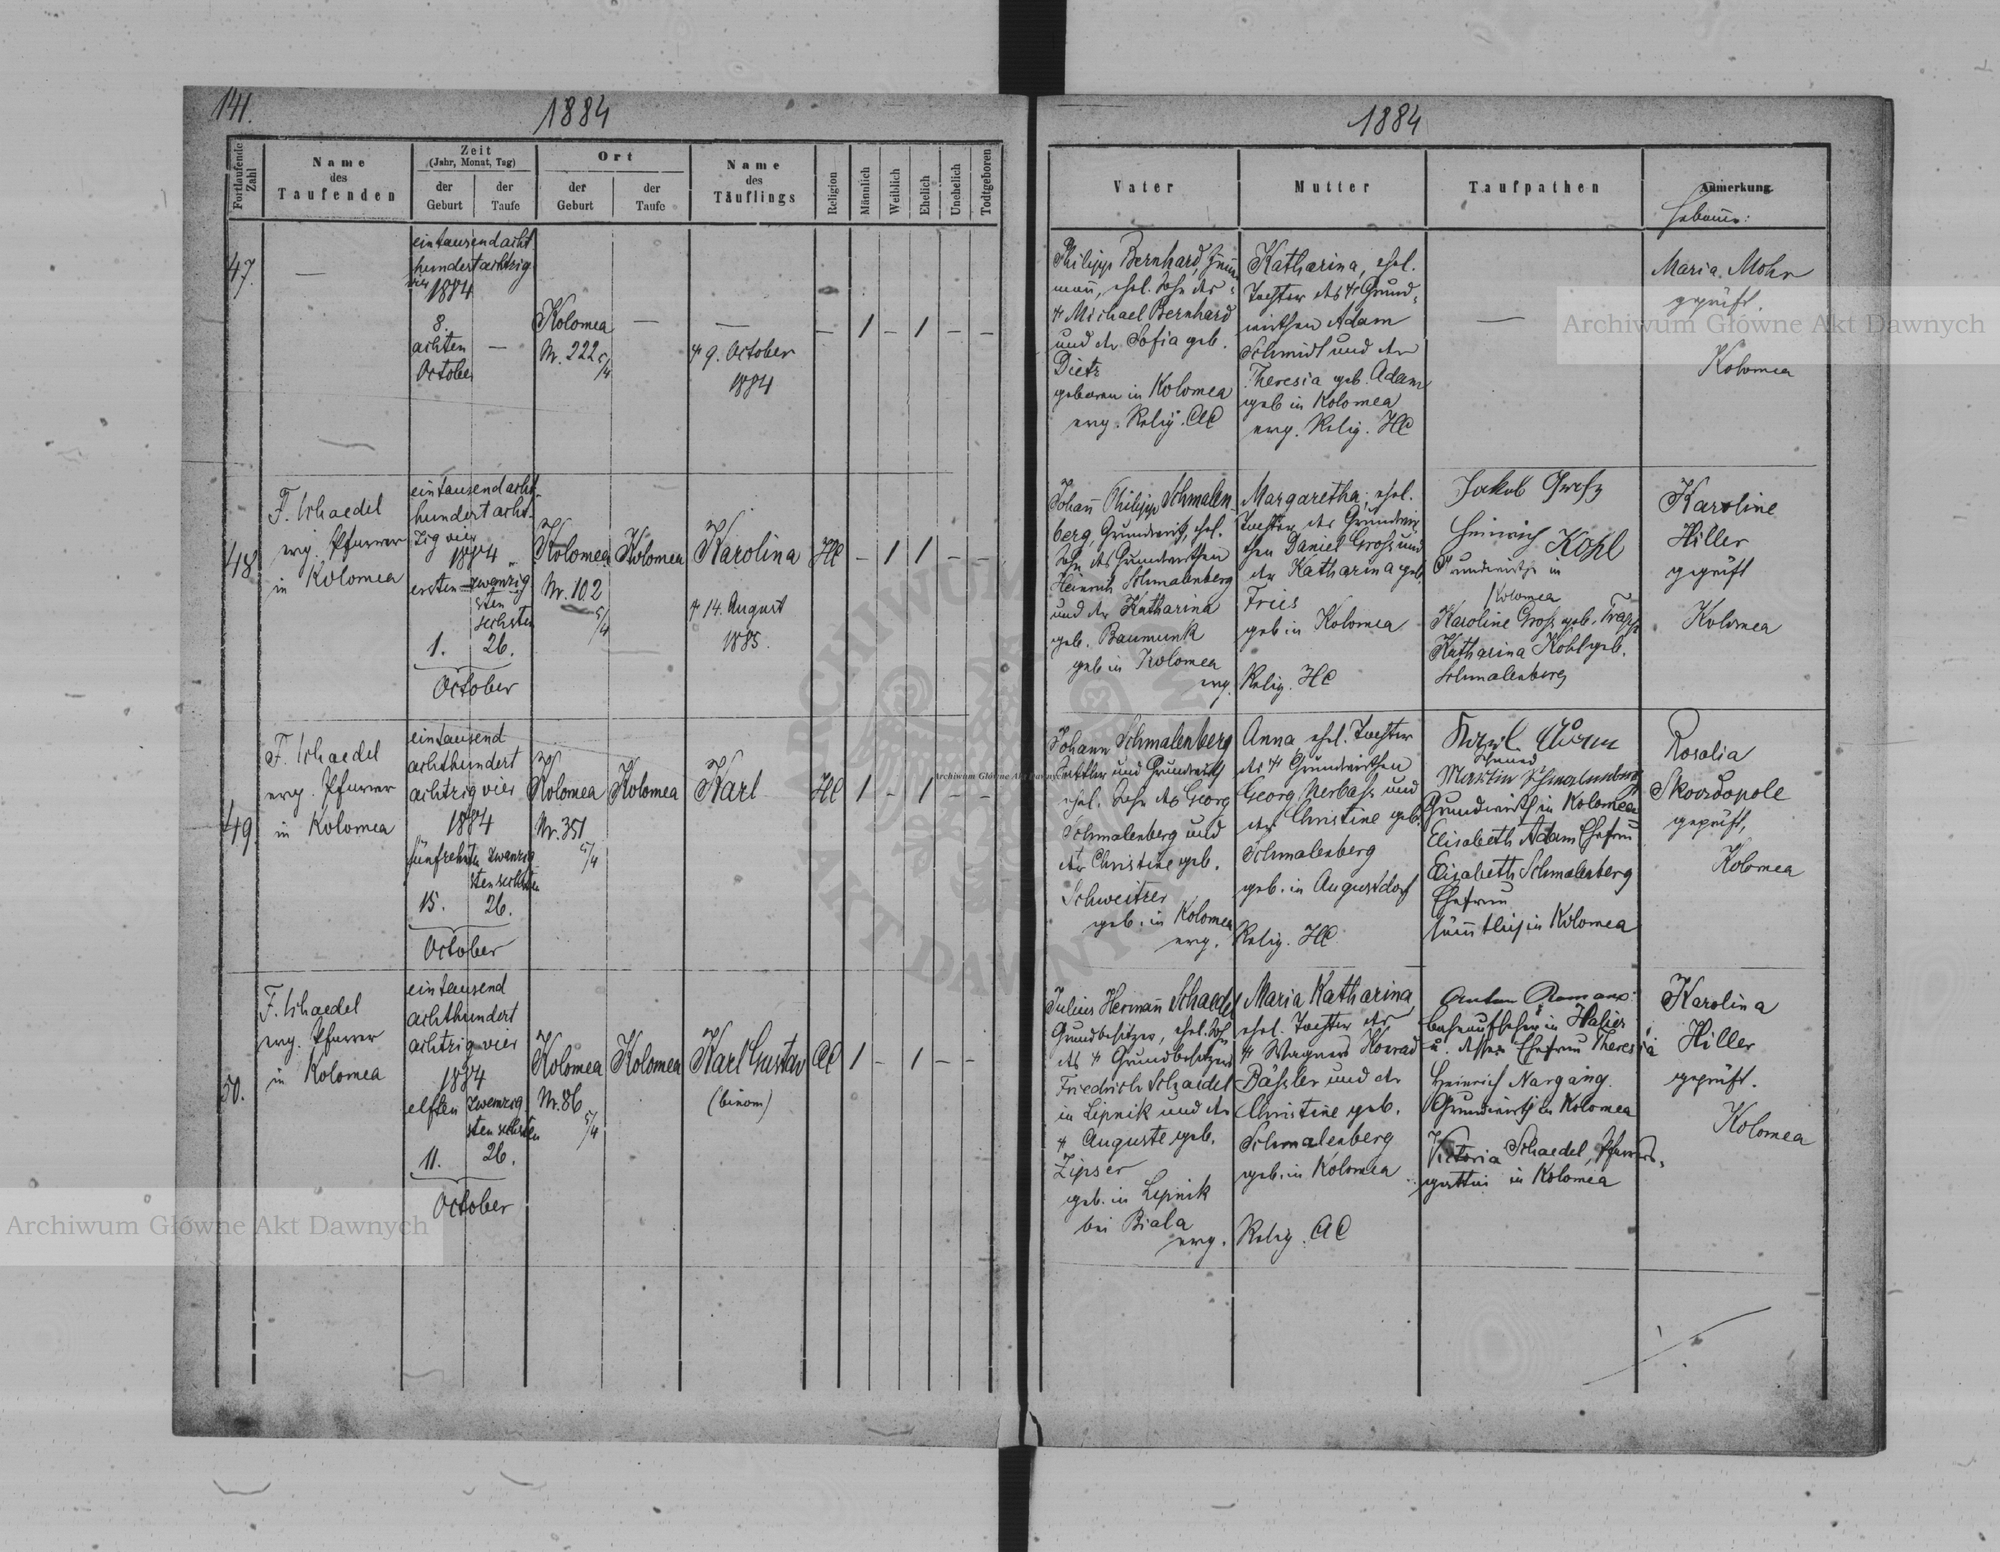 141.
1884
1884
Fortlaufende Zahl
Name des Taufenden
Zeit (Jahr, Monat, Tag)
der Geburt
der Taufe
Ort
der Geburt
der Taufe
Name des Täuflings
Religion
Männlich
Weiblich
Ehelich
Unehelich
Todtgeboren
Vater
Mutter
Taufpathen
Anmerkung.
47.
—
eintausendacht
hundertachtzig
vier
1884
8.
achten
October
—
Kolomea
Nr. 222 5/4
—
—
4 9. October
1884
— 1 — 1 — —
Philipp Bernhard,
ehel. Sohn des
4 Michael Bernhard
und der Sofia geb.
Dietz
geboren in Kolomea
evg. Relig. AC
Katharina, ehel.
Tochter des 4 Grund-
wirthen Adam
Schmidt und der
Theresia geb. Adam
geb in Kolomea
evg. Relig. HC
—
Maria Mohr
geprüft.
Kolomea
48.
F. Schaedel
evg. Pfarrer
in Kolomea
eintausendacht-
hundertacht-
zigvier
1884
ersten
zwanzig
sten
sechsten
1. 26.
October
Kolomea
Nr. 102
5/4
Kolomea
Karolina
4 14. August
1885.
HC
— 1 1 — —
Johann Philipp Schmalen-
berg, Grundwirth, ehel.
Sohn des Grundwirthen
Heinrich Schmalenberg
und der Katharina
geb. Baumunk
geb in Kolomea
evg.
Margaretha, ehel.
Tochter des Grundwir
then Daniel Gross und
der Katharina geb.
Fries
geb in Kolomea
Relig. HC
Jakob Gross
Heinrich Kohl
Grundwirthe in
Kolomea
Karoline Gross geb.
Katharina Kohl geb.
Schmalenberg
Karoline
Hiller
geprüft
Kolomea
49.
F. Schaedel
evg. Pfarrer
in Kolomea
eintausend
achthundert
achtzigvier
1884
fünfzehnten
zwanzig
stensechsten
15. 26.
October
Kolomea
Nr. 351
5/4
Kolomea
Karl
HC
1 — 1 — —
Johann Schmalenberg
Sattler und Grundwirth
ehel. Sohn des Georg
Schmalenberg und
der Christine geb.
Schweitzer
geb. in Kolomea
evg.
Anna, ehel. Tochter
des 4 Grundwirthen
Georg Nerbass und
der Christine geb.
Schmalenberg
geb. in Augustdorf
Relig. HC
Karl Adam
Schmied
Martin Schmalenberg
Grundwirth in Kolomea
Elisabeth Adam Ehefrau
Elisabeth Schmalenberg
Ehefrau
sämmtlich in Kolomea
Rosalia
Skovrdopole
geprüft,
Kolomea
50.
F. Schaedel
evg. Pfarrer
in Kolomea
eintausend
achthundert
achtzigvier
1884
elften
zwanzig
stensechsten
11. 26.
October
Kolomea
Nr. 86
5/4
Kolomea
Karl Gustav
(binom)
AC
1 — 1 — —
Julius Hermann Schaedel
Grundbesitzer, ehel. Sohn
des 4 Grundbesitzers
Friedrich Schaedel
in Lipnik und der
4 Auguste geb.
Zipser
geb. in Lipnik
bei Biala
evg.
Maria Katharina
ehel. Tochter des
4 Wagners Konrad
Bässler und der
Christine geb.
Schmalenberg
geb. in Kolomea
Relig. AC
Anton Romans
Bahnaufseher in Halicz
u. dessen Ehefrau Theresia
Heinrich Nargang
Grundwirth in Kolomea
Victoria Schaedel, Pfarrers-
gattin in Kolomea
Karolina
Hiller
geprüft.
Kolomea
Archiwum Główne Akt Dawnych
Archiwum Główne Akt Dawnych
Archiwum Główne Akt Dawnych
ARCHIWUM
AKT DAWNYCH